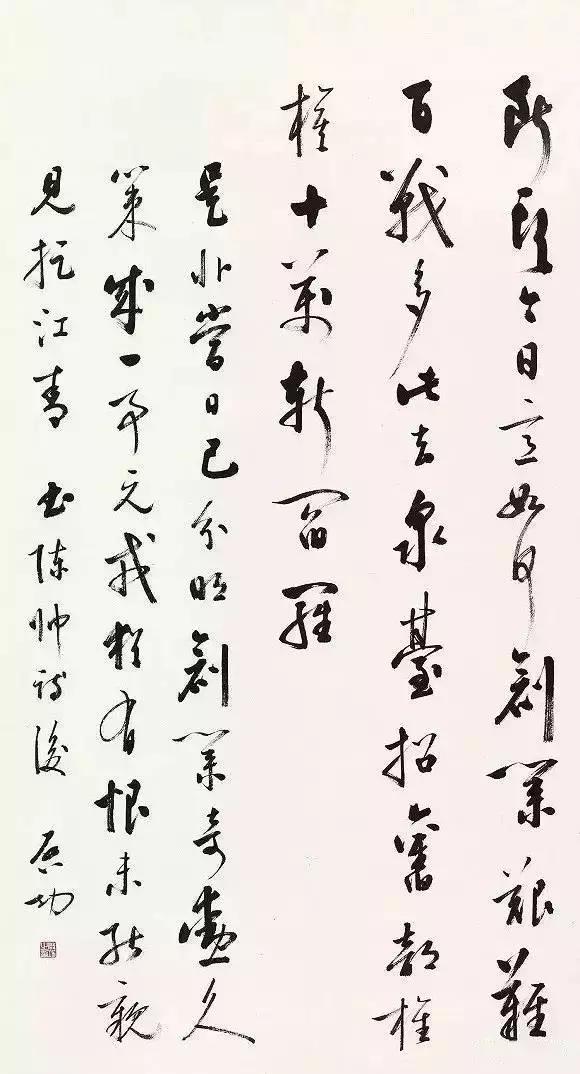 斷頭今日意如何創業艱難
百戰多此去泉臺招舊部旌
旗十萬斬閻羅
是非當日已分明創業奇勳久
策成一事元戎猶有恨未能親
見捉江青 書陳帥詩後 啟功